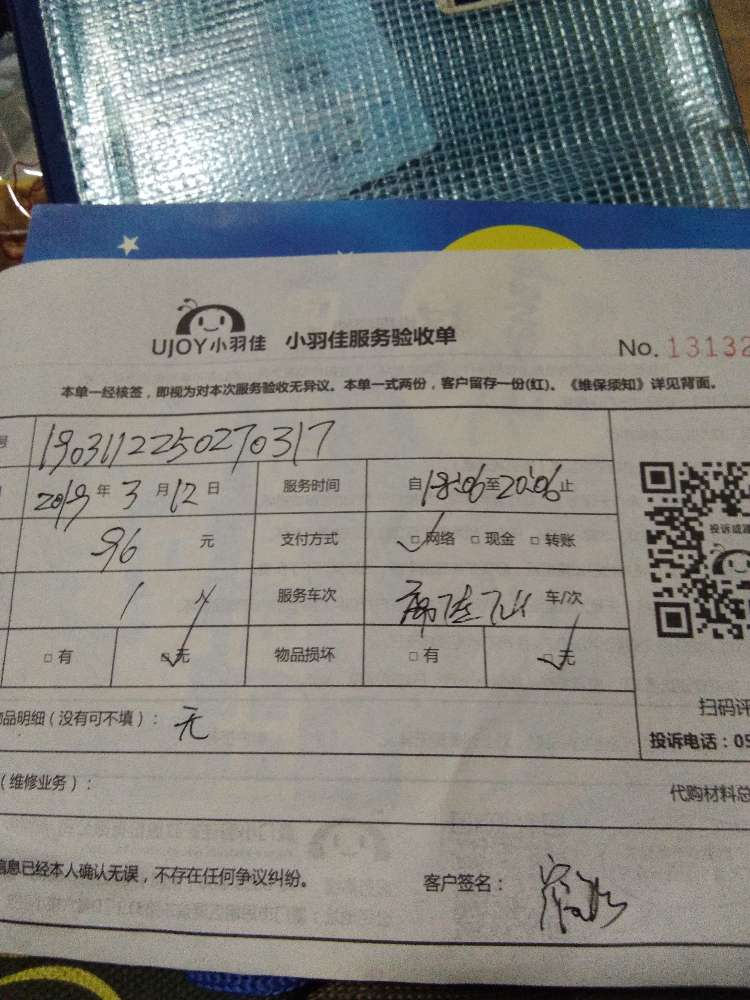 UJOY小羽佳 小羽佳服务验收单
No. 13132
本单一经核签，即视为对本次服务验收无异议。本单一式两份，客户留存一份(红)。《维保须知》详见背面。
号 190311225027 0317
2019 年 3 月 12 日 服务时间 自 18:06 至 20:06 止
96 元 支付方式 □网络 □现金 □转账
1 人 服务车次 车/次
□有 □无 物品损坏 □有 □无
投诉或建
扫码评
品明细（没有可不填）： 无
投诉电话：05
（维修业务）：
代购材料总
信息已经本人确认无误，不存在任何争议纠纷。 客户签名：